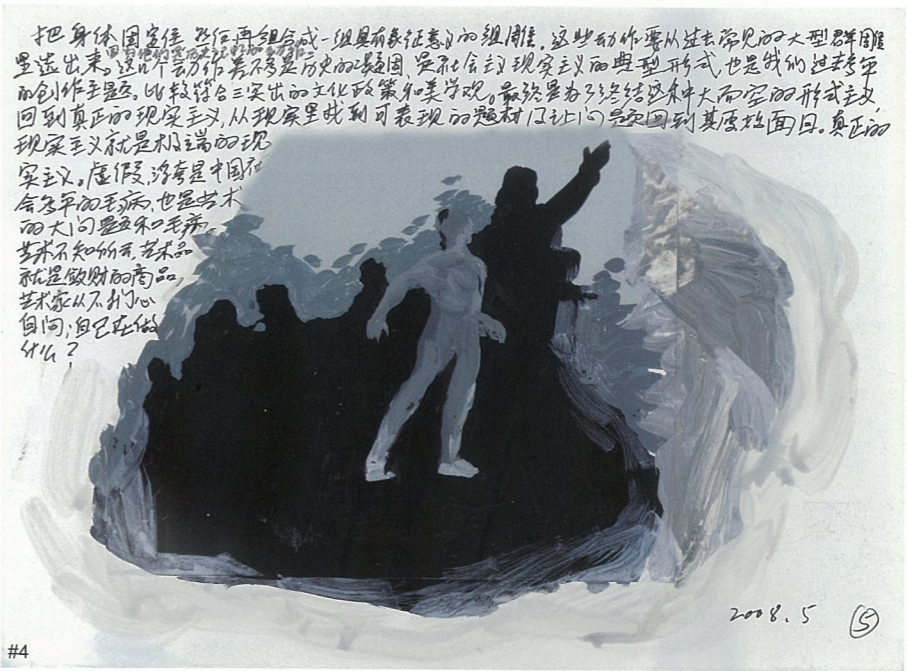 把身体固定住,然后再组合成一组具有象征意义的组雕。这些动作要从过去常见的大型群雕
里选出来。这几个动作并不是历史的凝固,突社会主义现实主义的典型形式,也是我们过去多年
的创作主题。比较符合三突出的文化政策和美学观。最终是为了终结这种大而空的形式主义
回到真正的现实主义,从现实里找到可表现的题材 问题回到其原始面目。真正的
现实主义就是极端的现
实主义。虚假,浮夸是中国社
会多年的毛病,也是艺术
的大问题和毛病。
艺术不知所云,艺术品
就是敛财的商品,
艺术家从不扪心
自问:自己在做
什么?
2008.5 ⑤
#4